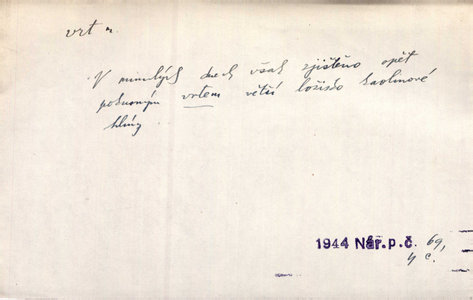 vrt m.
V minulých dnech však zjištěno opět
pokusným vrtem větší ložisko kaolinové
hlíny
1944 Nár.p.č. 69,
4 c.